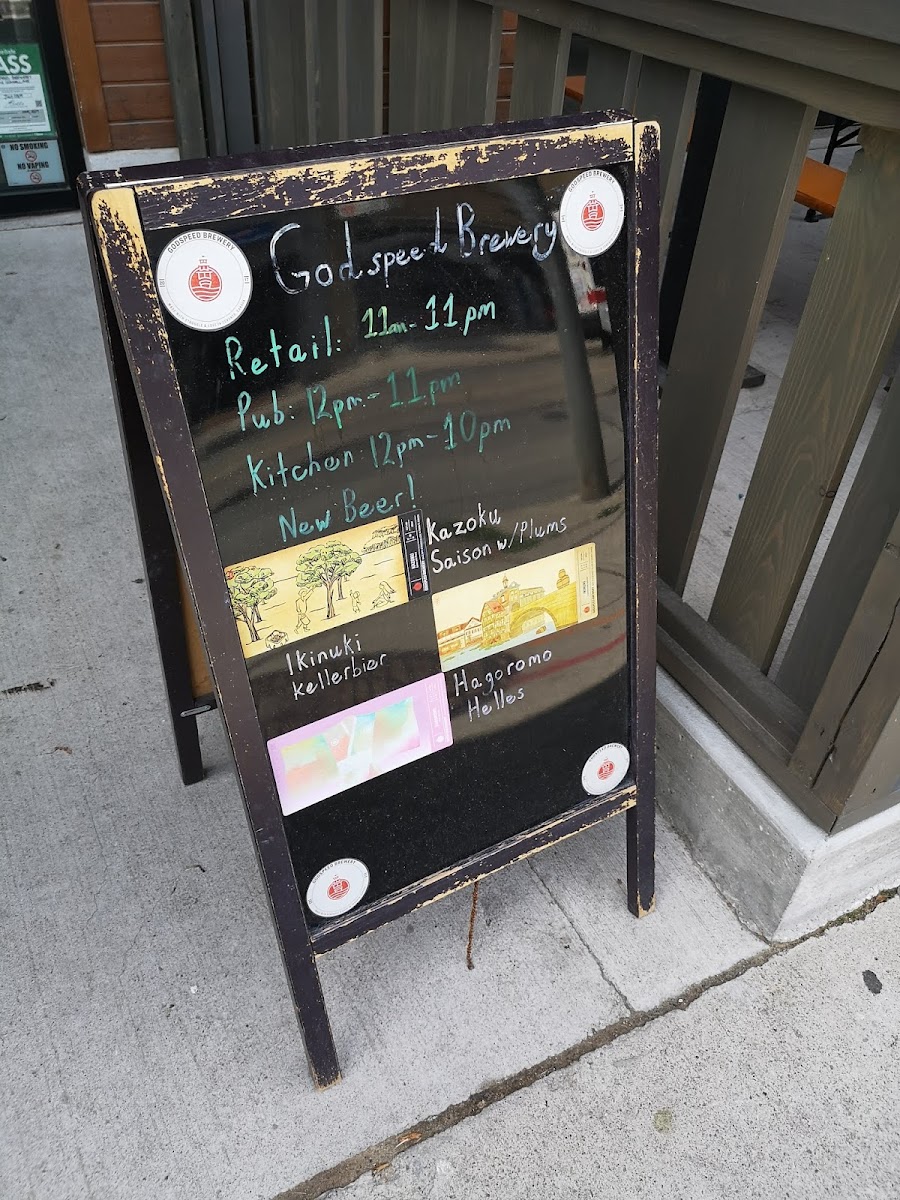 ASS
NO SMOKING
NO VAPING
GODSPEED BREWERY
GODSPEED BREWERY
Godspeed Brewery
Retail: 11am - 11pm
Pub: 12pm - 11pm
Kitchen 12pm - 10pm
New Beer!
Kazoku
Saison w/Plums
Ikinuki
Kellerbier
Hagoromo
Helles
GODSPEED BREWERY
GODSPEED BREWERY